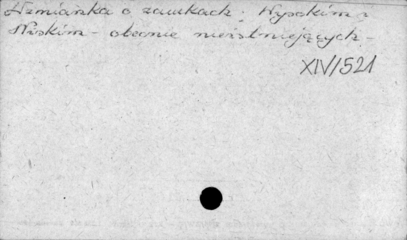 Wzmianka o zamkach: Wysokim i
Niskim - obecnie nieistniejących -
XIV/521